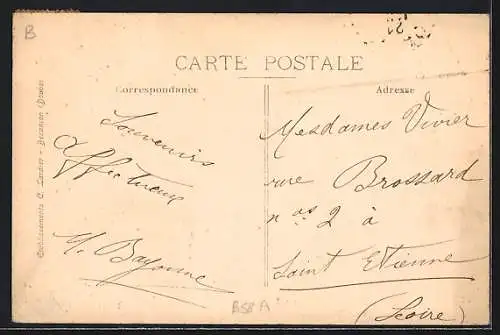 B
21
CARTE POSTALE
Correspondance
Adresse
Souvenirs
affectueux
M. Bayonne
Mesdames Vivier
rue Brossard
nos 2 à
Saint Etienne
(Loire)
Etablissements C. Lardier - Besançon (Doubs)
BSBA